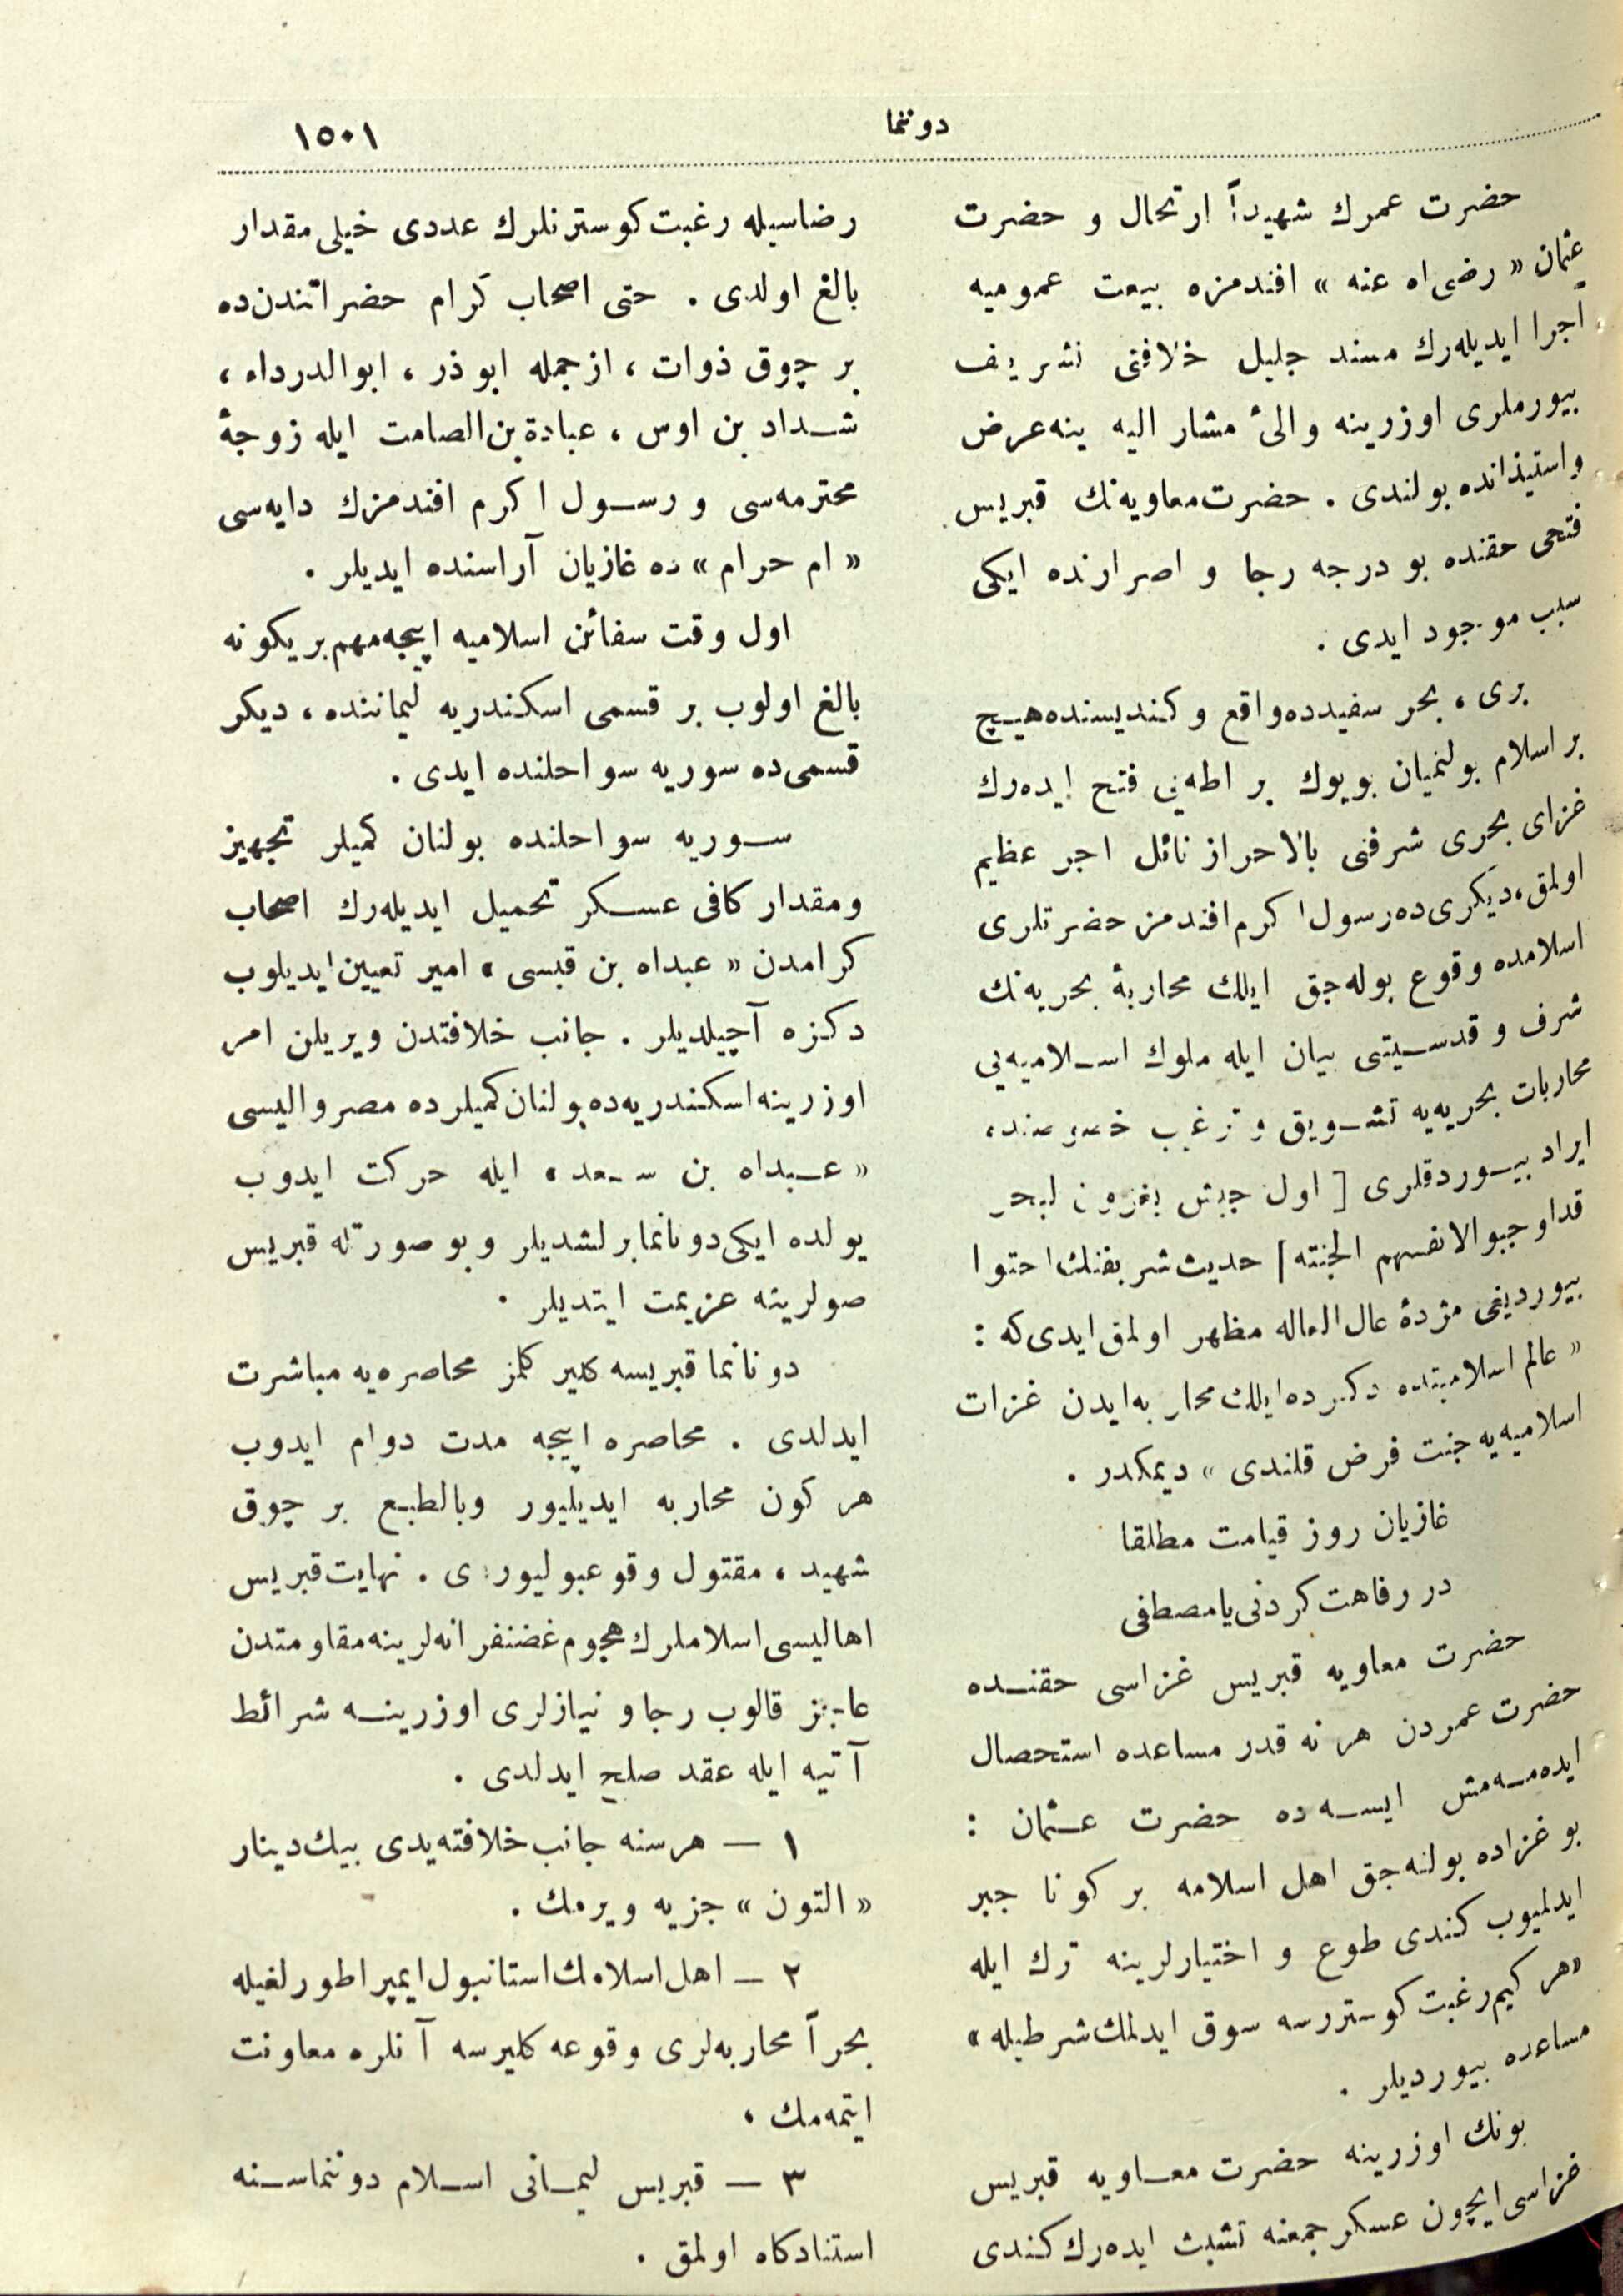 دوننما
١٥٠١
حضرت عمرك شهيداً ارتحال و حضرت
عثمان « رضى اه عنه » افندمزه بيعت عموميه
اجرا ايديله‌رك مسند جليل خلافتى تشريف
بيورملرى اوزرينه والىٔ مشار اليه ينه عرض
و استيذانده بولندى . حضرت معاويه‌نك قبريس
فتحى حقنده بو درجه رجا و اصرارنده ايكى
سبب موجود ايدى .
برى ، بحر سفيدده واقع و كنديسنده هيچ
بر اسلام بولنميان بويوك بر اطه‌يى فتح ايده‌رك
غزاى بحرى شرفنى بالاحراز نائل اجر عظيم
اولمق ، ديكرى ده رسول اكرم افندمز حضرتلرى
اسلامده وقوع بوله‌جق ايلك محاربۀ بحريه‌نك
شرف و قدسيتنى بيان ايله ملوك اسلاميه‌يى
محاربات بحريه‌يه تشويق و ترغيب خصوصنده ،
ايراد بيوردقلرى [ اول جيش يغزون البحر
قداوجبوا لانفسهم الجنته ] حديث شريفنك احتوا
بيورديغى مژدۀ عال العاله مظهر اولمق ايدى كه :
« عالم اسلاميتده دكزده ايلك محاربه ايدن غزات
اسلاميه‌يه جنت فرض قلندى » ديمكدر .
غازيان روز قيامت مطلقا
در رفاهت كردنى يا مصطفى
حضرت معاويه قبريس غزاسى حقنده
حضرت عمردن هر نه قدر مساعده استحصال
ايده‌مه‌مش ايسه‌ده حضرت عثمان :
بو غزاده بولنه‌جق اهل اسلامه بر كونا جبر
ايدلميوب كندى طوع و اختيارلرينه ترك ايله
« هر كيم رغبت كوستررسه سوق ايدلمك شرطيله »
مساعده بيورديلر .
بونك اوزرينه حضرت معاويه قبريس
غزاسى ايچون عسكر جمعنه تشبث ايده‌رك كندى
رضاسيله رغبت كوسترنلرك عددى خيلى مقدار
بالغ اولدى . حتى اصحاب كرام حضراتندن ده
بر چوق ذوات ، ازجمله ابوذر ، ابوالدرداء ،
شداد بن اوس ، عبادة بن الصامت ايله زوجۀ
محترمه‌سى و رسول اكرم افندمزك دايه‌سى
« ام حرام » ده غازيان آراسنده ايديلر .
اول وقت سفائن اسلاميه اپيجه مهم بر يكونه
بالغ اولوب بر قسمى اسكندريه ليماننده ، ديكر
قسمى ده سوريه سواحلنده ايدى .
سوريه سواحلنده بولنان كميلر تجهيز
و مقدار كافى عسكر تحميل ايديله‌رك اصحاب
كرامدن « عبداه بن قيسى » امير تعيين ايديلوب
دكزه آچيلديلر . جانب خلافتدن ويريلن امر
اوزرينه اسكندريه‌ده بولنان كميلرده مصر واليسى
« عبداه بن سعد » ايله حركت ايدوب
يولده ايكى دونانما برلشديلر و بو صورتله قبريس
صولرينه عزيمت ايتديلر .
دونانما قبريسه كلير كلمز محاصره‌يه مباشرت
ايدلدى . محاصره اپيجه مدت دوام ايدوب
هر كون محاربه ايديليور وبالطبع بر چوق
شهيد ، مقتول وقوعبوليوردى . نهايت قبريس
اهاليسى اسلاملرك هجوم غضنفرانه‌لرينه مقاومتدن
عاجز قالوب رجا و نيازلرى اوزرينه شرائط
آتيه ايله عقد صلح ايدلدى .
١ — هر سنه جانب خلافته يدى بيك دينار
« التون » جزيه ويرمك .
٢ — اهل اسلامك استانبول ايمپراطورلغيله
بحراً محاربه‌لرى وقوعه كليرسه آنلره معاونت
ايتمه‌مك ،
٣ — قبريس ليمانى اسلام دوننماسنه
استنادكاه اولمق .